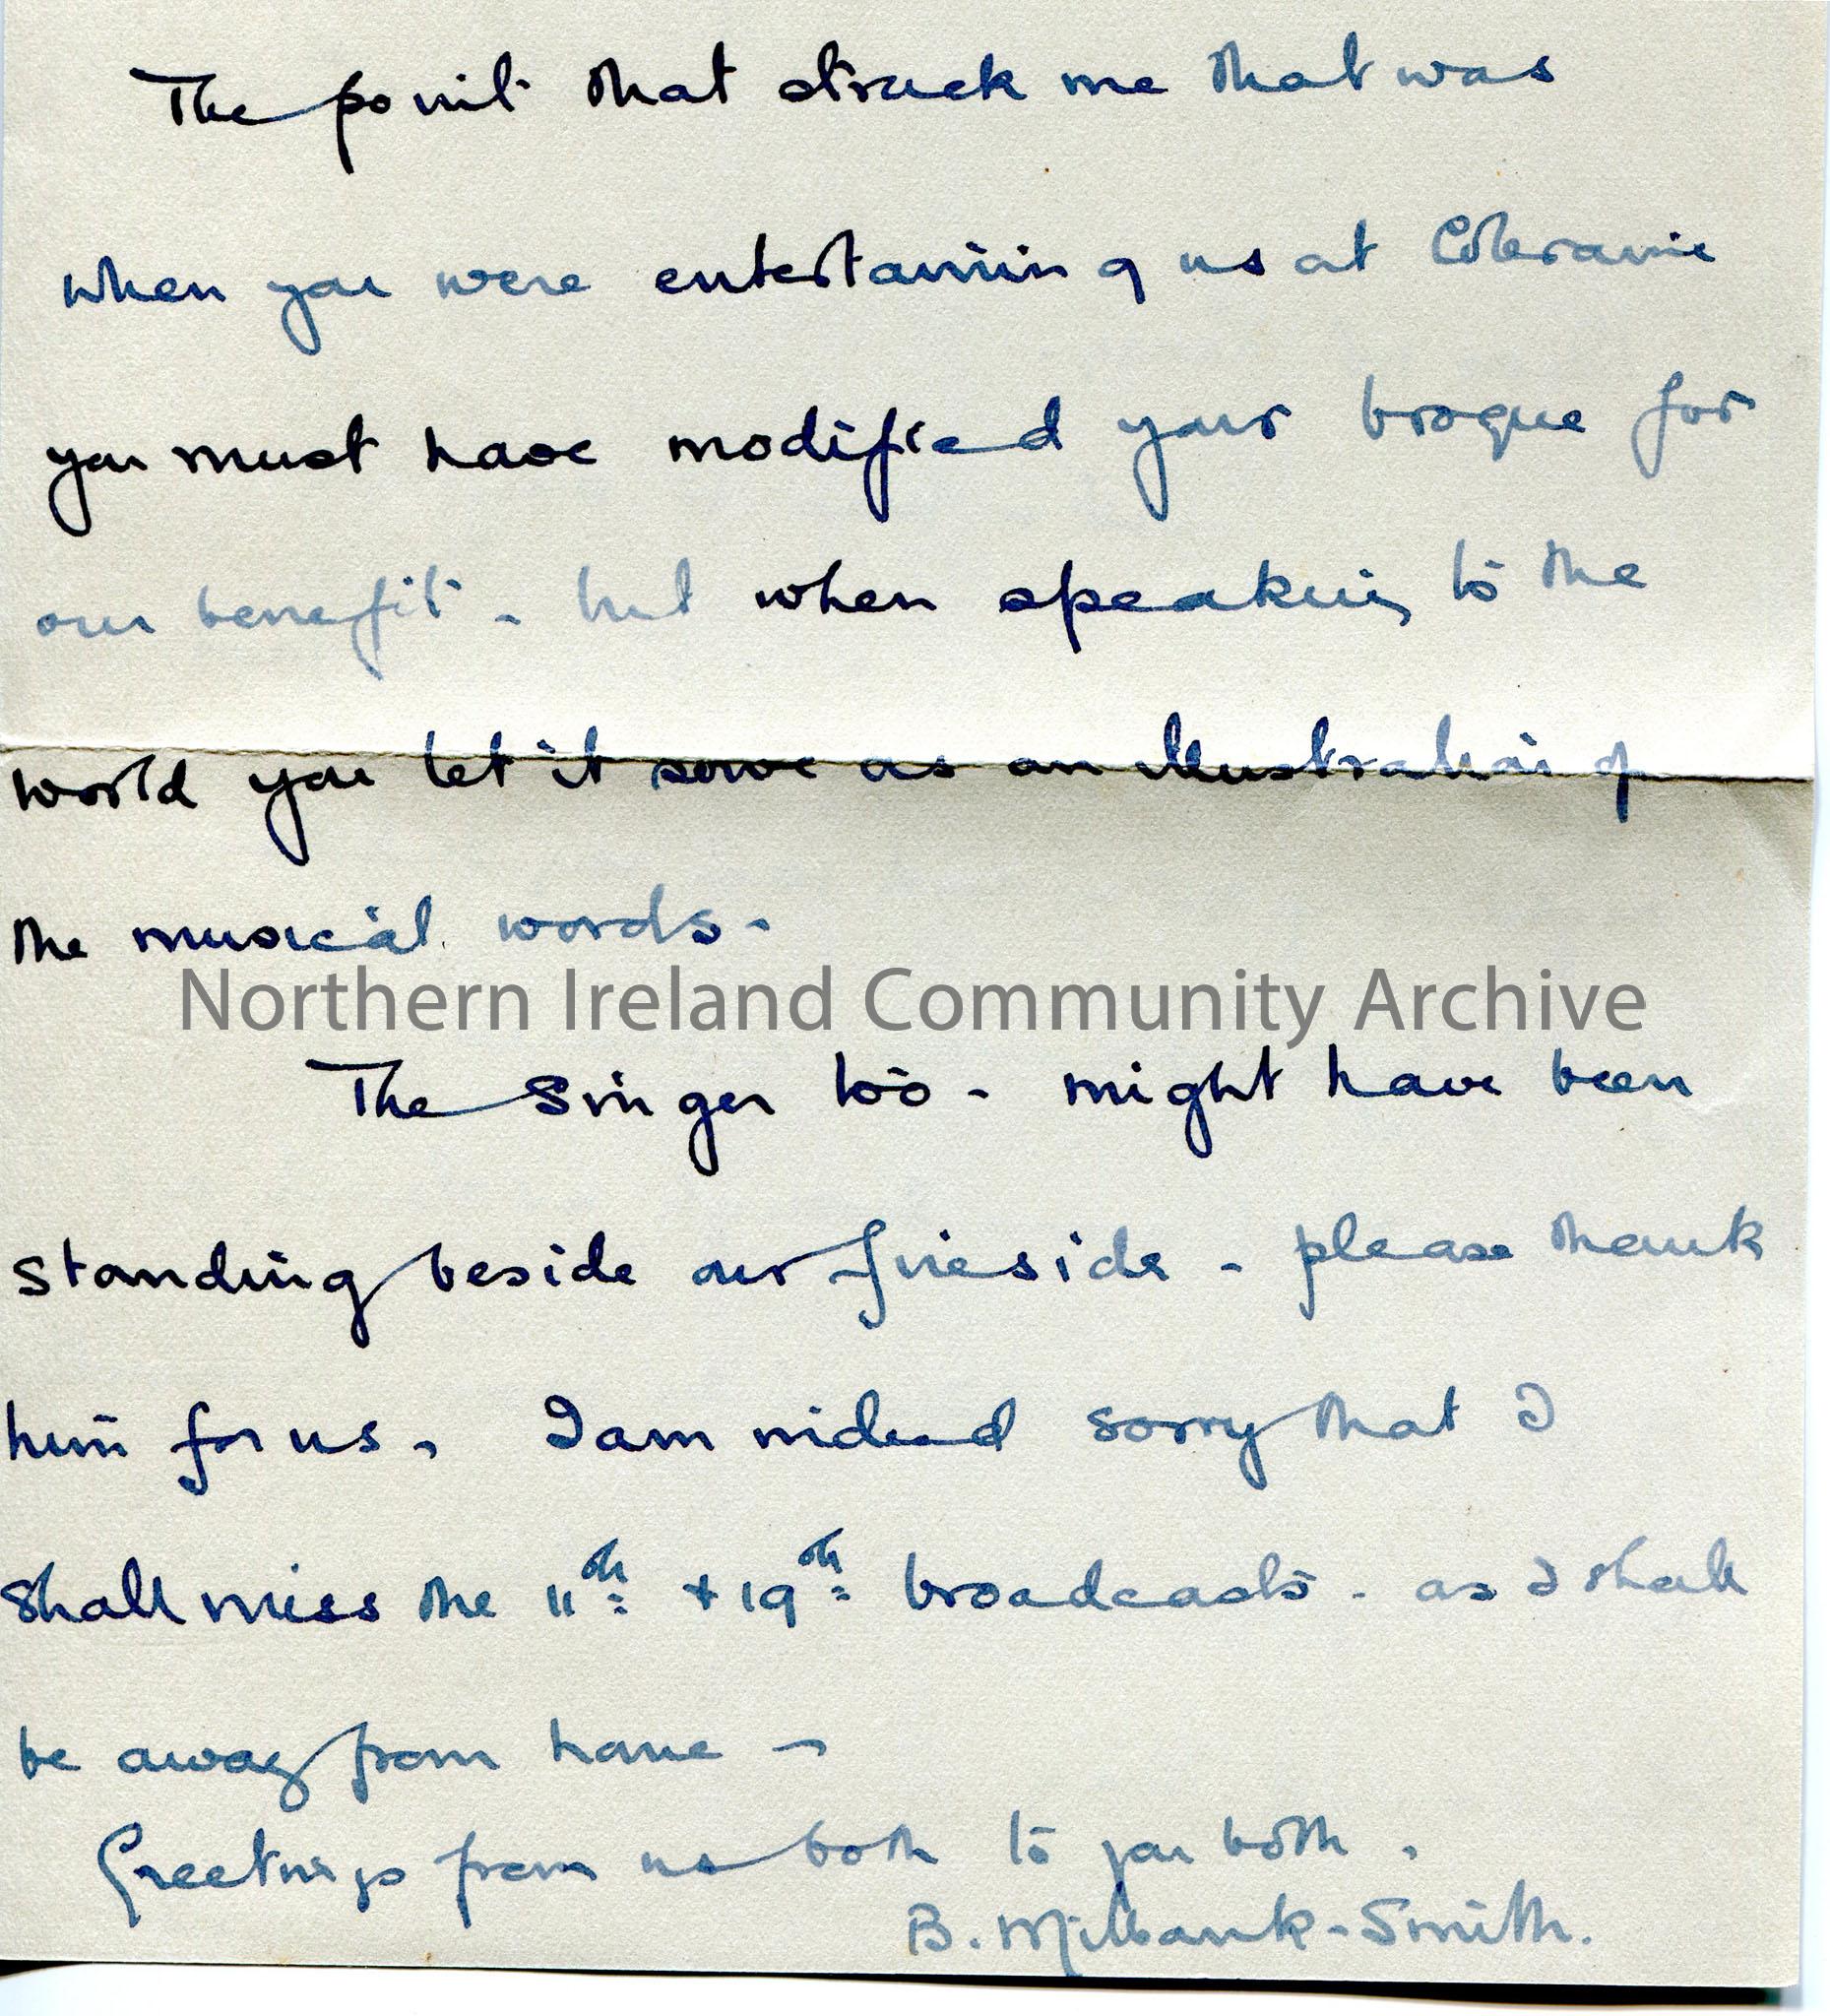 The point that struck me that was
when you were entertaining us at Coleraine
you must have modified your brogue for
our benefit - but when speaking to the
world you let it serve as an illustration of
the musical words -
Northern Ireland Community Archive
The Singer too - might have been
standing beside our fireside - please thank
him for us. I am indeed sorry that I
shall miss the 11th + 19th broadcasts - as I shall
be away from home -
Greetings from us both to you both.
B. Milbank-Smith.